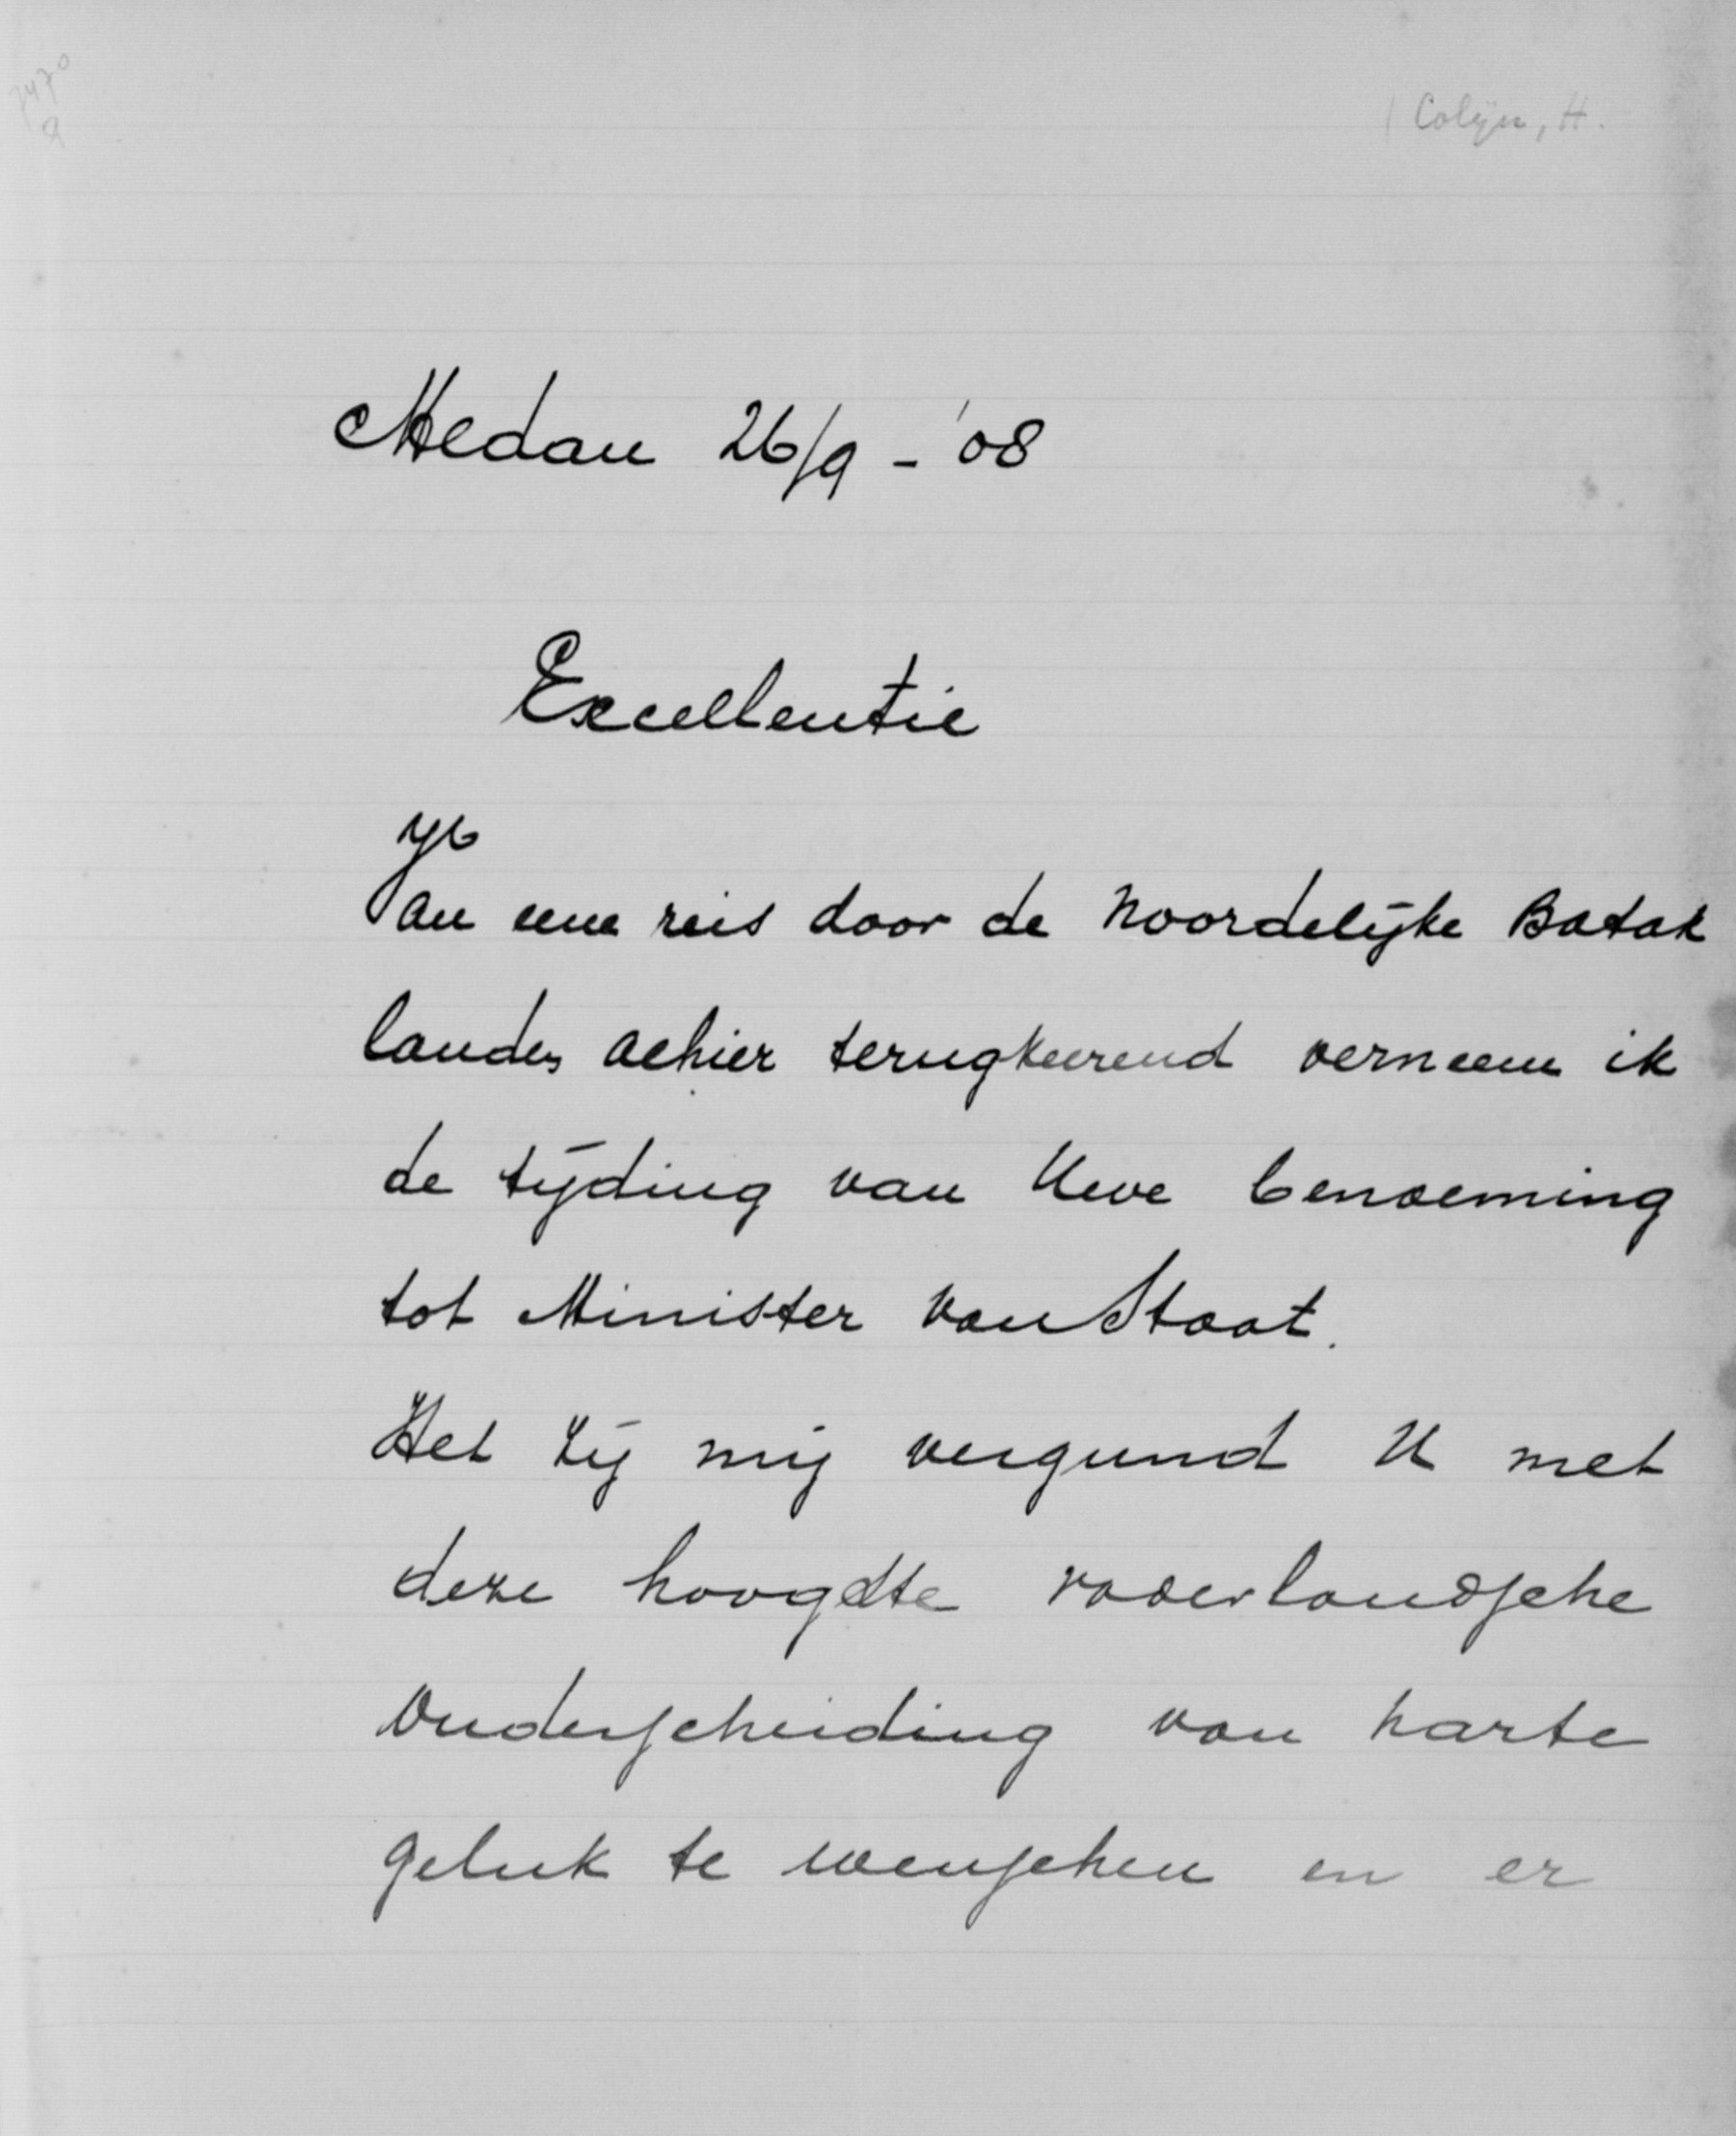 Colijn, H.
Medan 26/9 - '08
Excellentie
Van eene reis door de Noordelijke Batak
landen alhier terugkeerend verneem ik
de tijding van Uwe benoeming
tot Minister van Staat.
Het zij mij vergund U met
deze hoogste vaderlandsche
onderscheiding van harte
geluk te wenschen en er